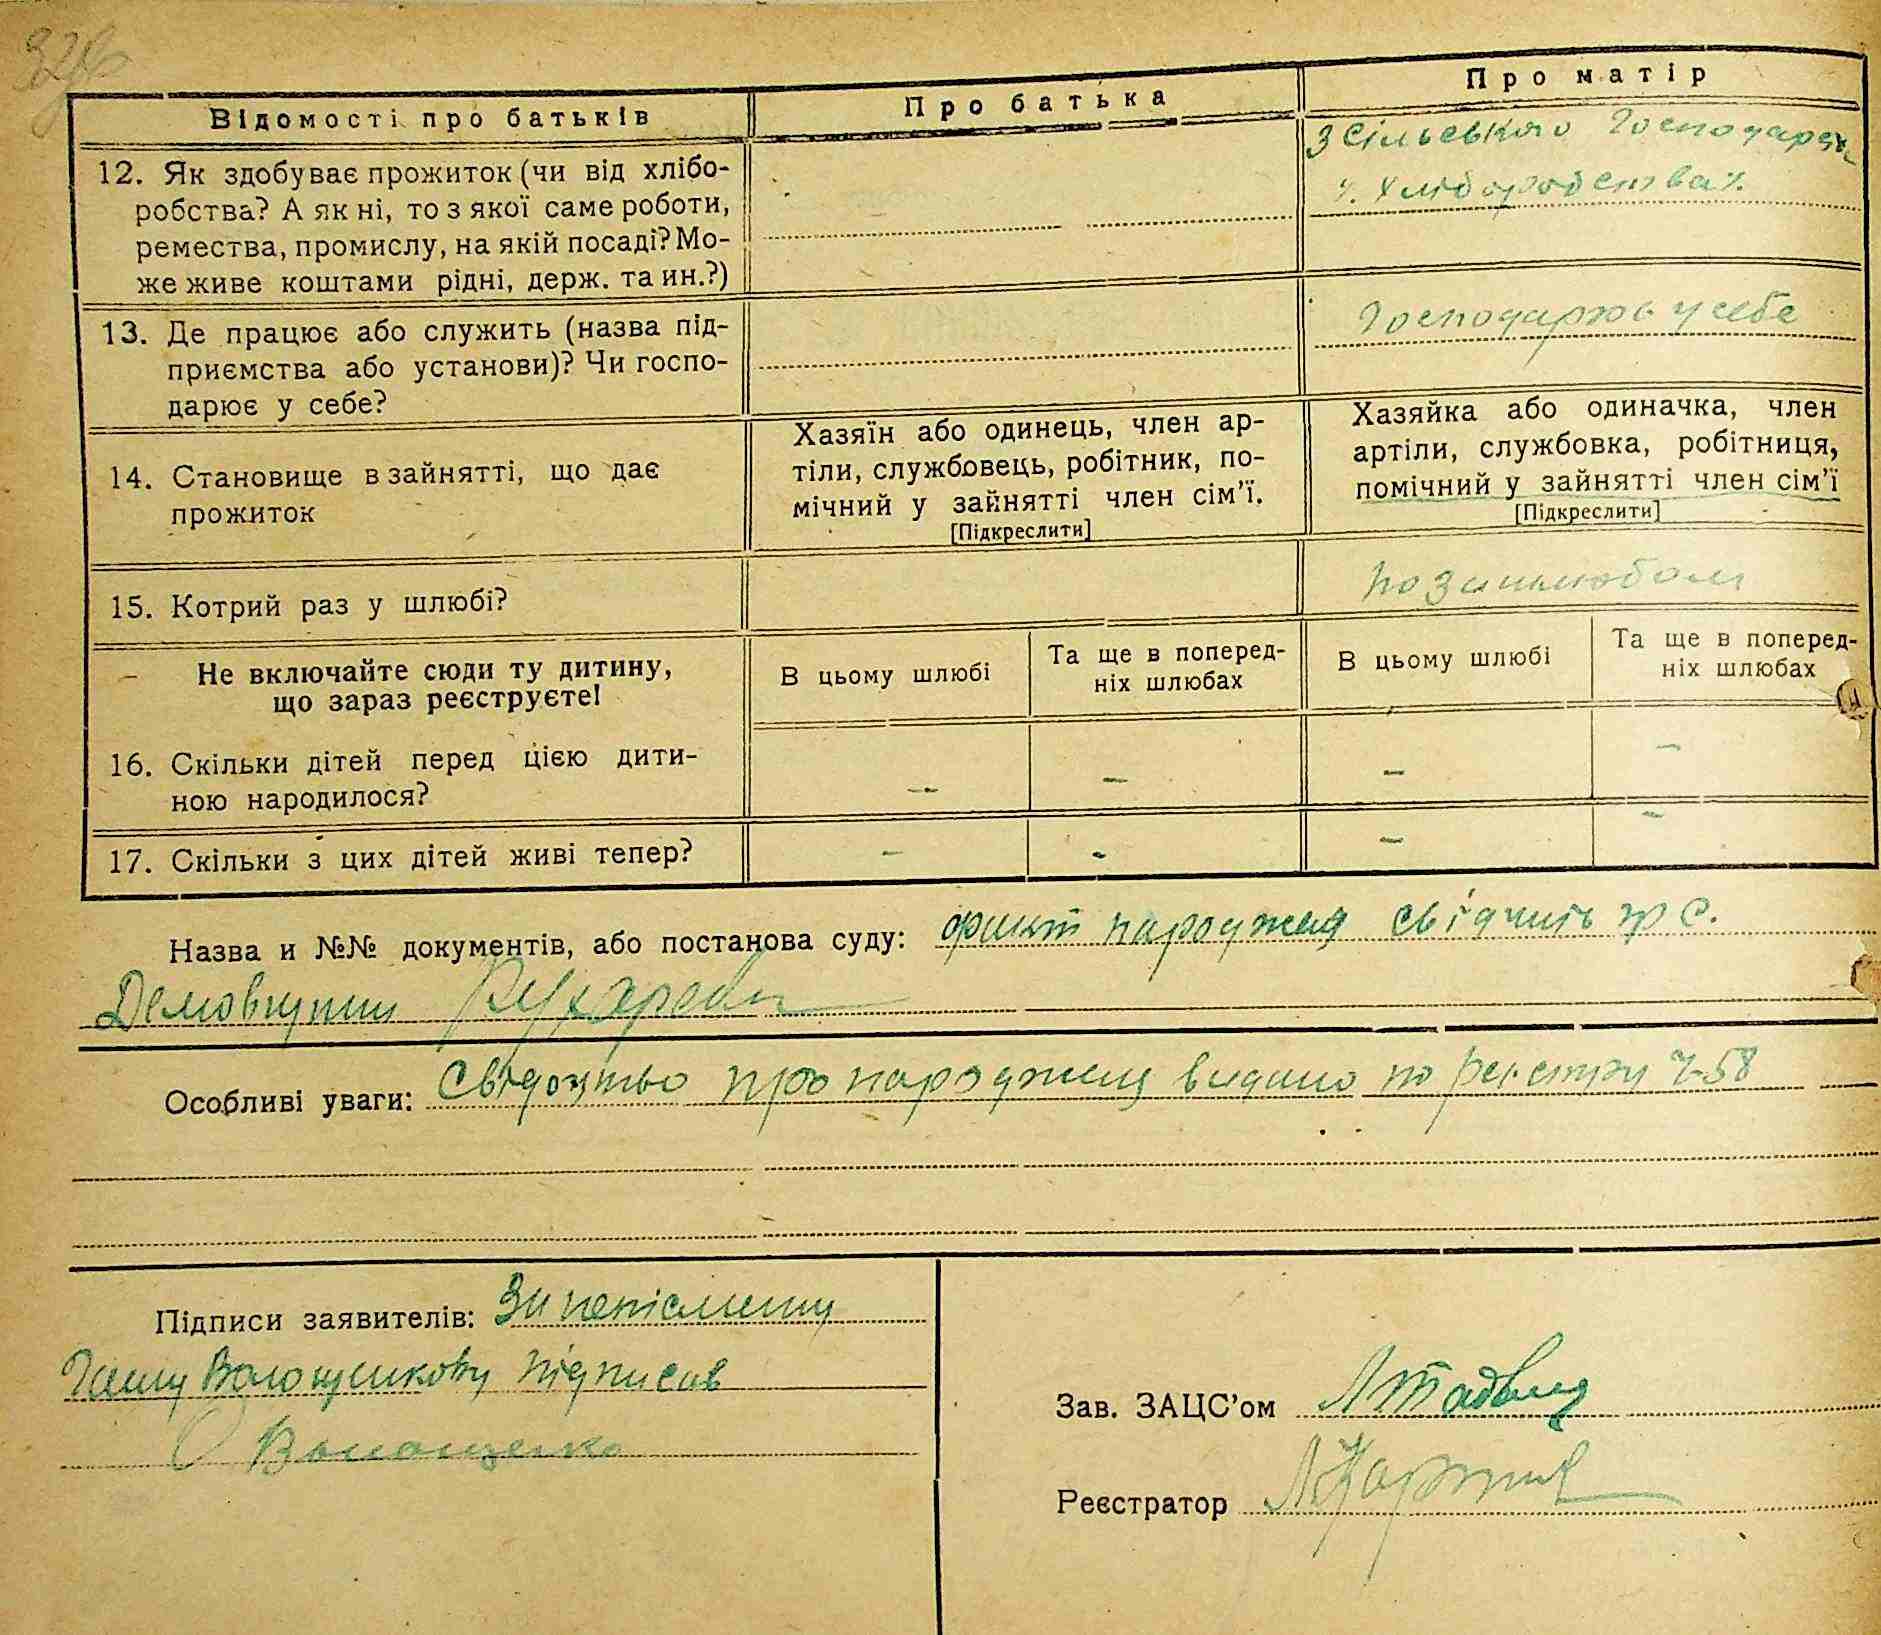 Відомості про батьків
Про батька
Про матір
12. Як здобуває прожиток (чи від хлібо-
робства? А як ні, то з якої саме роботи,
ремества, промислу, на якій посаді? Мо-
же живе коштами рідні, держ. та ин.?)
З сільського господарст
ч. хліборобства ч.
13. Де працює або служить (назва під-
приємства або установи)? Чи госпо-
дарює у себе?
Господарює у себе
14. Становище в зайнятті, що дає
прожиток
Хазяїн або одинець, член ар-
тіли, службовець, робітник, по-
мічний у зайнятті член сім'ї.
[Підкреслити]
Хазяйка або одиначка, член
артіли, службовка, робітниця,
помічний у зайнятті член сім'ї
[Підкреслити]
15. Котрий раз у шлюбі?
Позашлюбом
Не включайте сюди ту дитину,
що зараз реєструєте!
В цьому шлюбі
Та ще в поперед-
ніх шлюбах
В цьому шлюбі
Та ще в поперед-
ніх шлюбах
16. Скільки дітей перед цією дити-
ною народилося?
– – – –
17. Скільки з цих дітей живі тепер?
– – – –
Назва и №№ документів, або постанова суду: факт народженя свідчить гр С.
Особливі уваги: Свідоцтво про народженя видано по реєстру Ч-58
Підписи заявителів: За неписьмену
Волощукову підписав
Волощенко
Зав. ЗАЦС'ом
Реєстратор